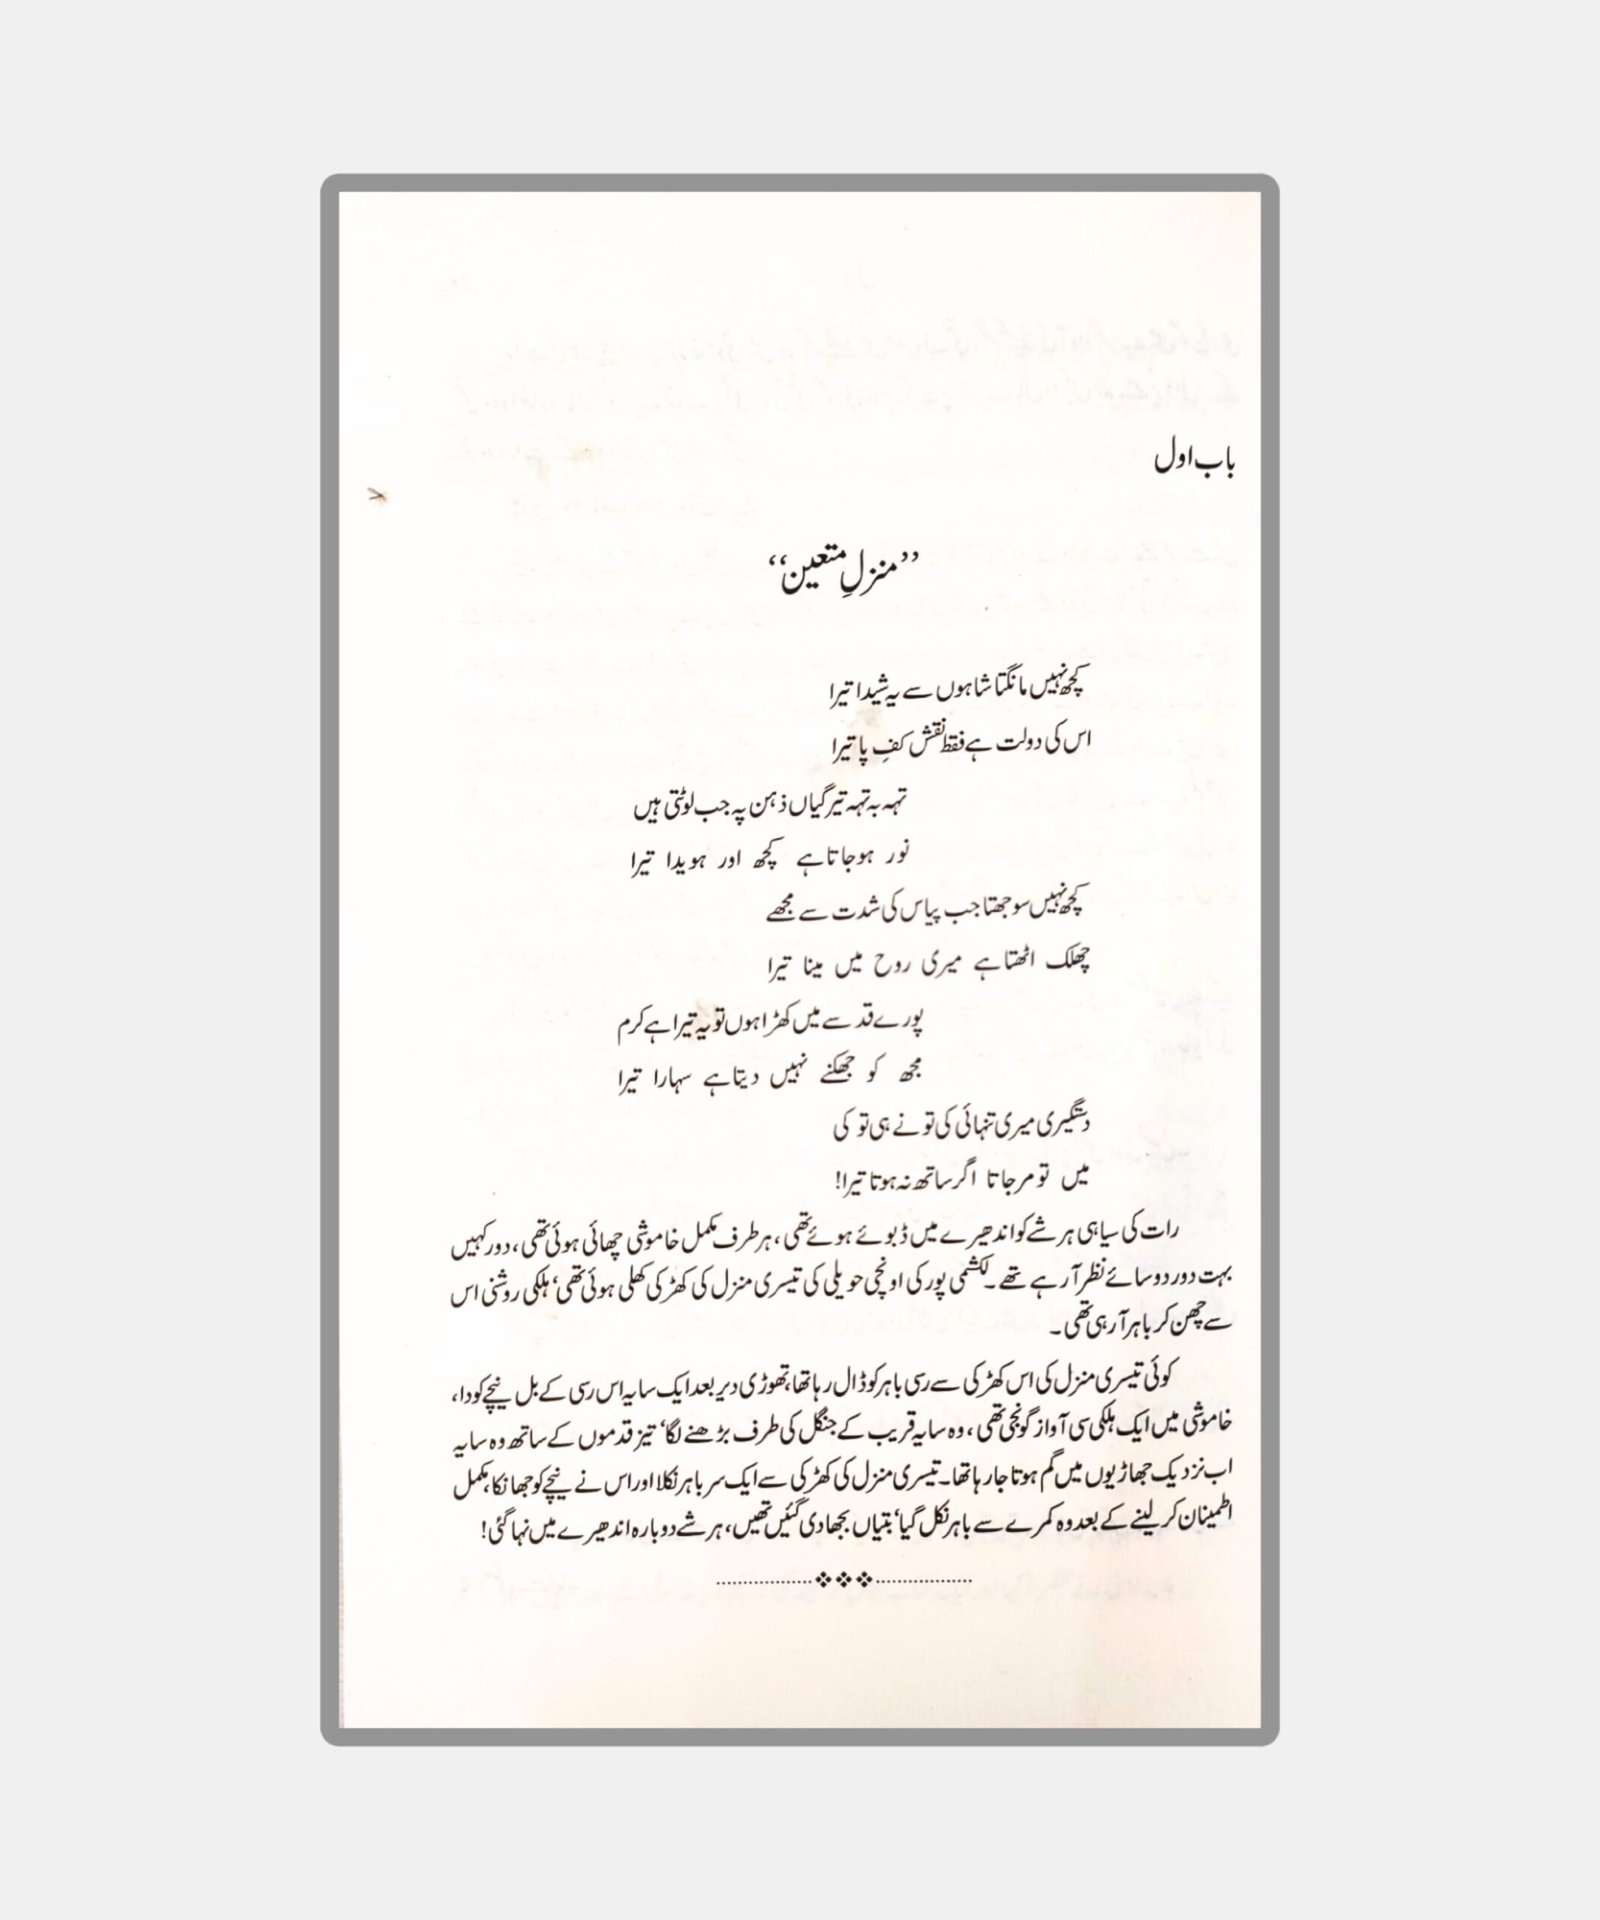 باب اول
”منزلِ متعین“
کچھ نہیں مانگتا شاہوں سے یہ شیدا تیرا
اس کی دولت ہے فقط نقش کفِ پا تیرا
تہہ بہ تہہ تیرگیاں ذہن پہ جب لوٹتی ہیں
نور ہوجاتا ہے کچھ اور ہویدا تیرا
کچھ نہیں سوجھتا جب پیاس کی شدت سے مجھے
چھلک اٹھتا ہے میری روح میں مینا تیرا
پورے قد سے میں کھڑا ہوں تو یہ تیرا ہے کرم
مجھ کو جھکنے نہیں دیتا ہے سہارا تیرا
دستگیری میری تنہائی کی تو نے ہی تو کی
میں تو مر جاتا اگر ساتھ نہ ہوتا تیرا!
رات کی سیاہی ہر شے کو اندھیرے میں ڈبوئے ہوئے تھی، ہر طرف مکمل خاموشی چھائی ہوئی تھی، دور کہیں
بہت دور دو سائے نظر آ رہے تھے۔ لکشمی پور کی اونچی حویلی کی تیسری منزل کی کھڑکی کھلی ہوئی تھی‘ ہلکی روشنی اس
سے چھن کر باہر آ رہی تھی۔
کوئی تیسری منزل کی اس کھڑکی سے رسی باہر کو ڈال رہا تھا، تھوڑی دیر بعد ایک سایہ اس رسی کے بل نیچے کودا،
خاموشی میں ایک ہلکی سی آواز گونجی تھی، وہ سایہ قریب کے جنگل کی طرف بڑھنے لگا‘ تیز قدموں کے ساتھ وہ سایہ
اب نزدیک جھاڑیوں میں گم ہوتا جا رہا تھا۔ تیسری منزل کی کھڑکی سے ایک سر باہر نکلا اور اس نے نیچے کو جھانکا، مکمل
اطمینان کر لینے کے بعد وہ کمرے سے باہر نکل گیا‘ بتیاں بجھا دی گئیں تھیں، ہر شے دوبارہ اندھیرے میں نہا گئی!